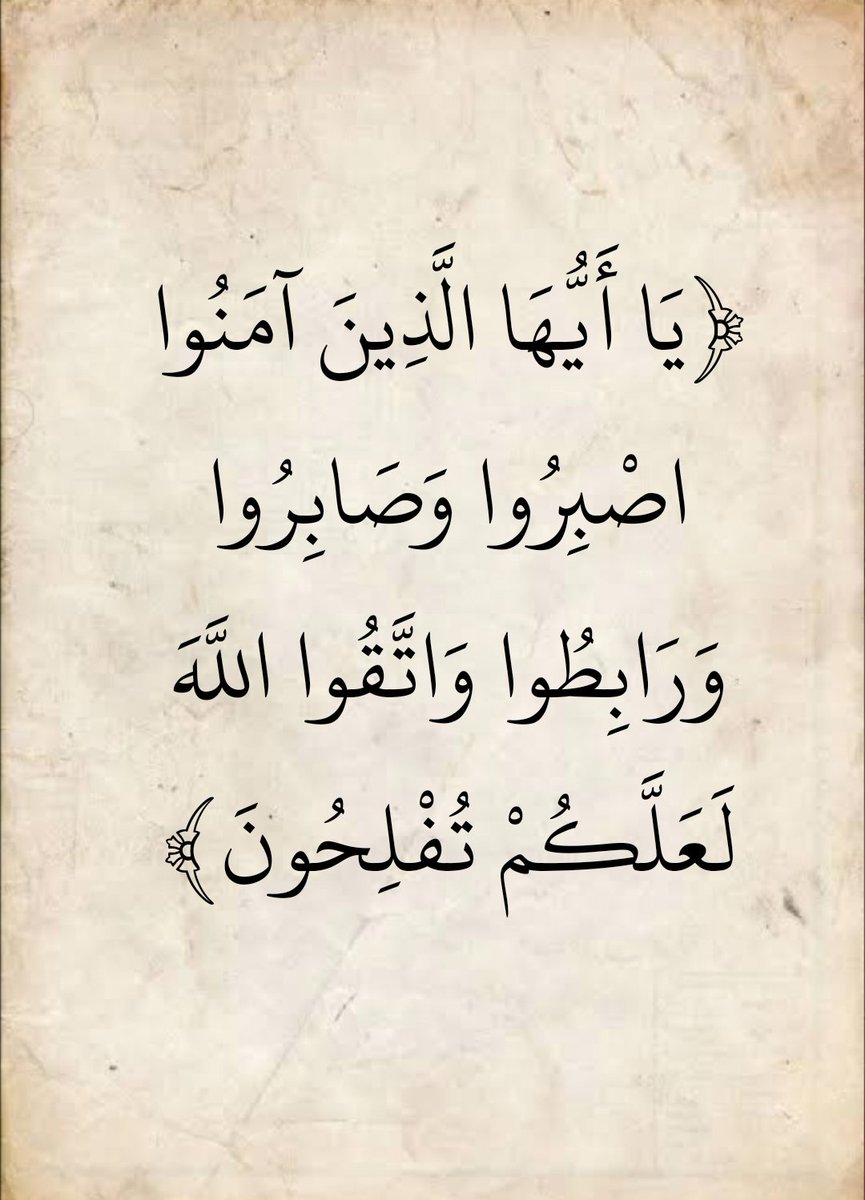 ﴿يَا أَيُّهَا الَّذِينَ آمَنُوا
اصْبِرُوا وَصَابِرُوا
وَرَابِطُوا وَاتَّقُوا اللَّهَ
لَعَلَّكُمْ تُفْلِحُونَ﴾